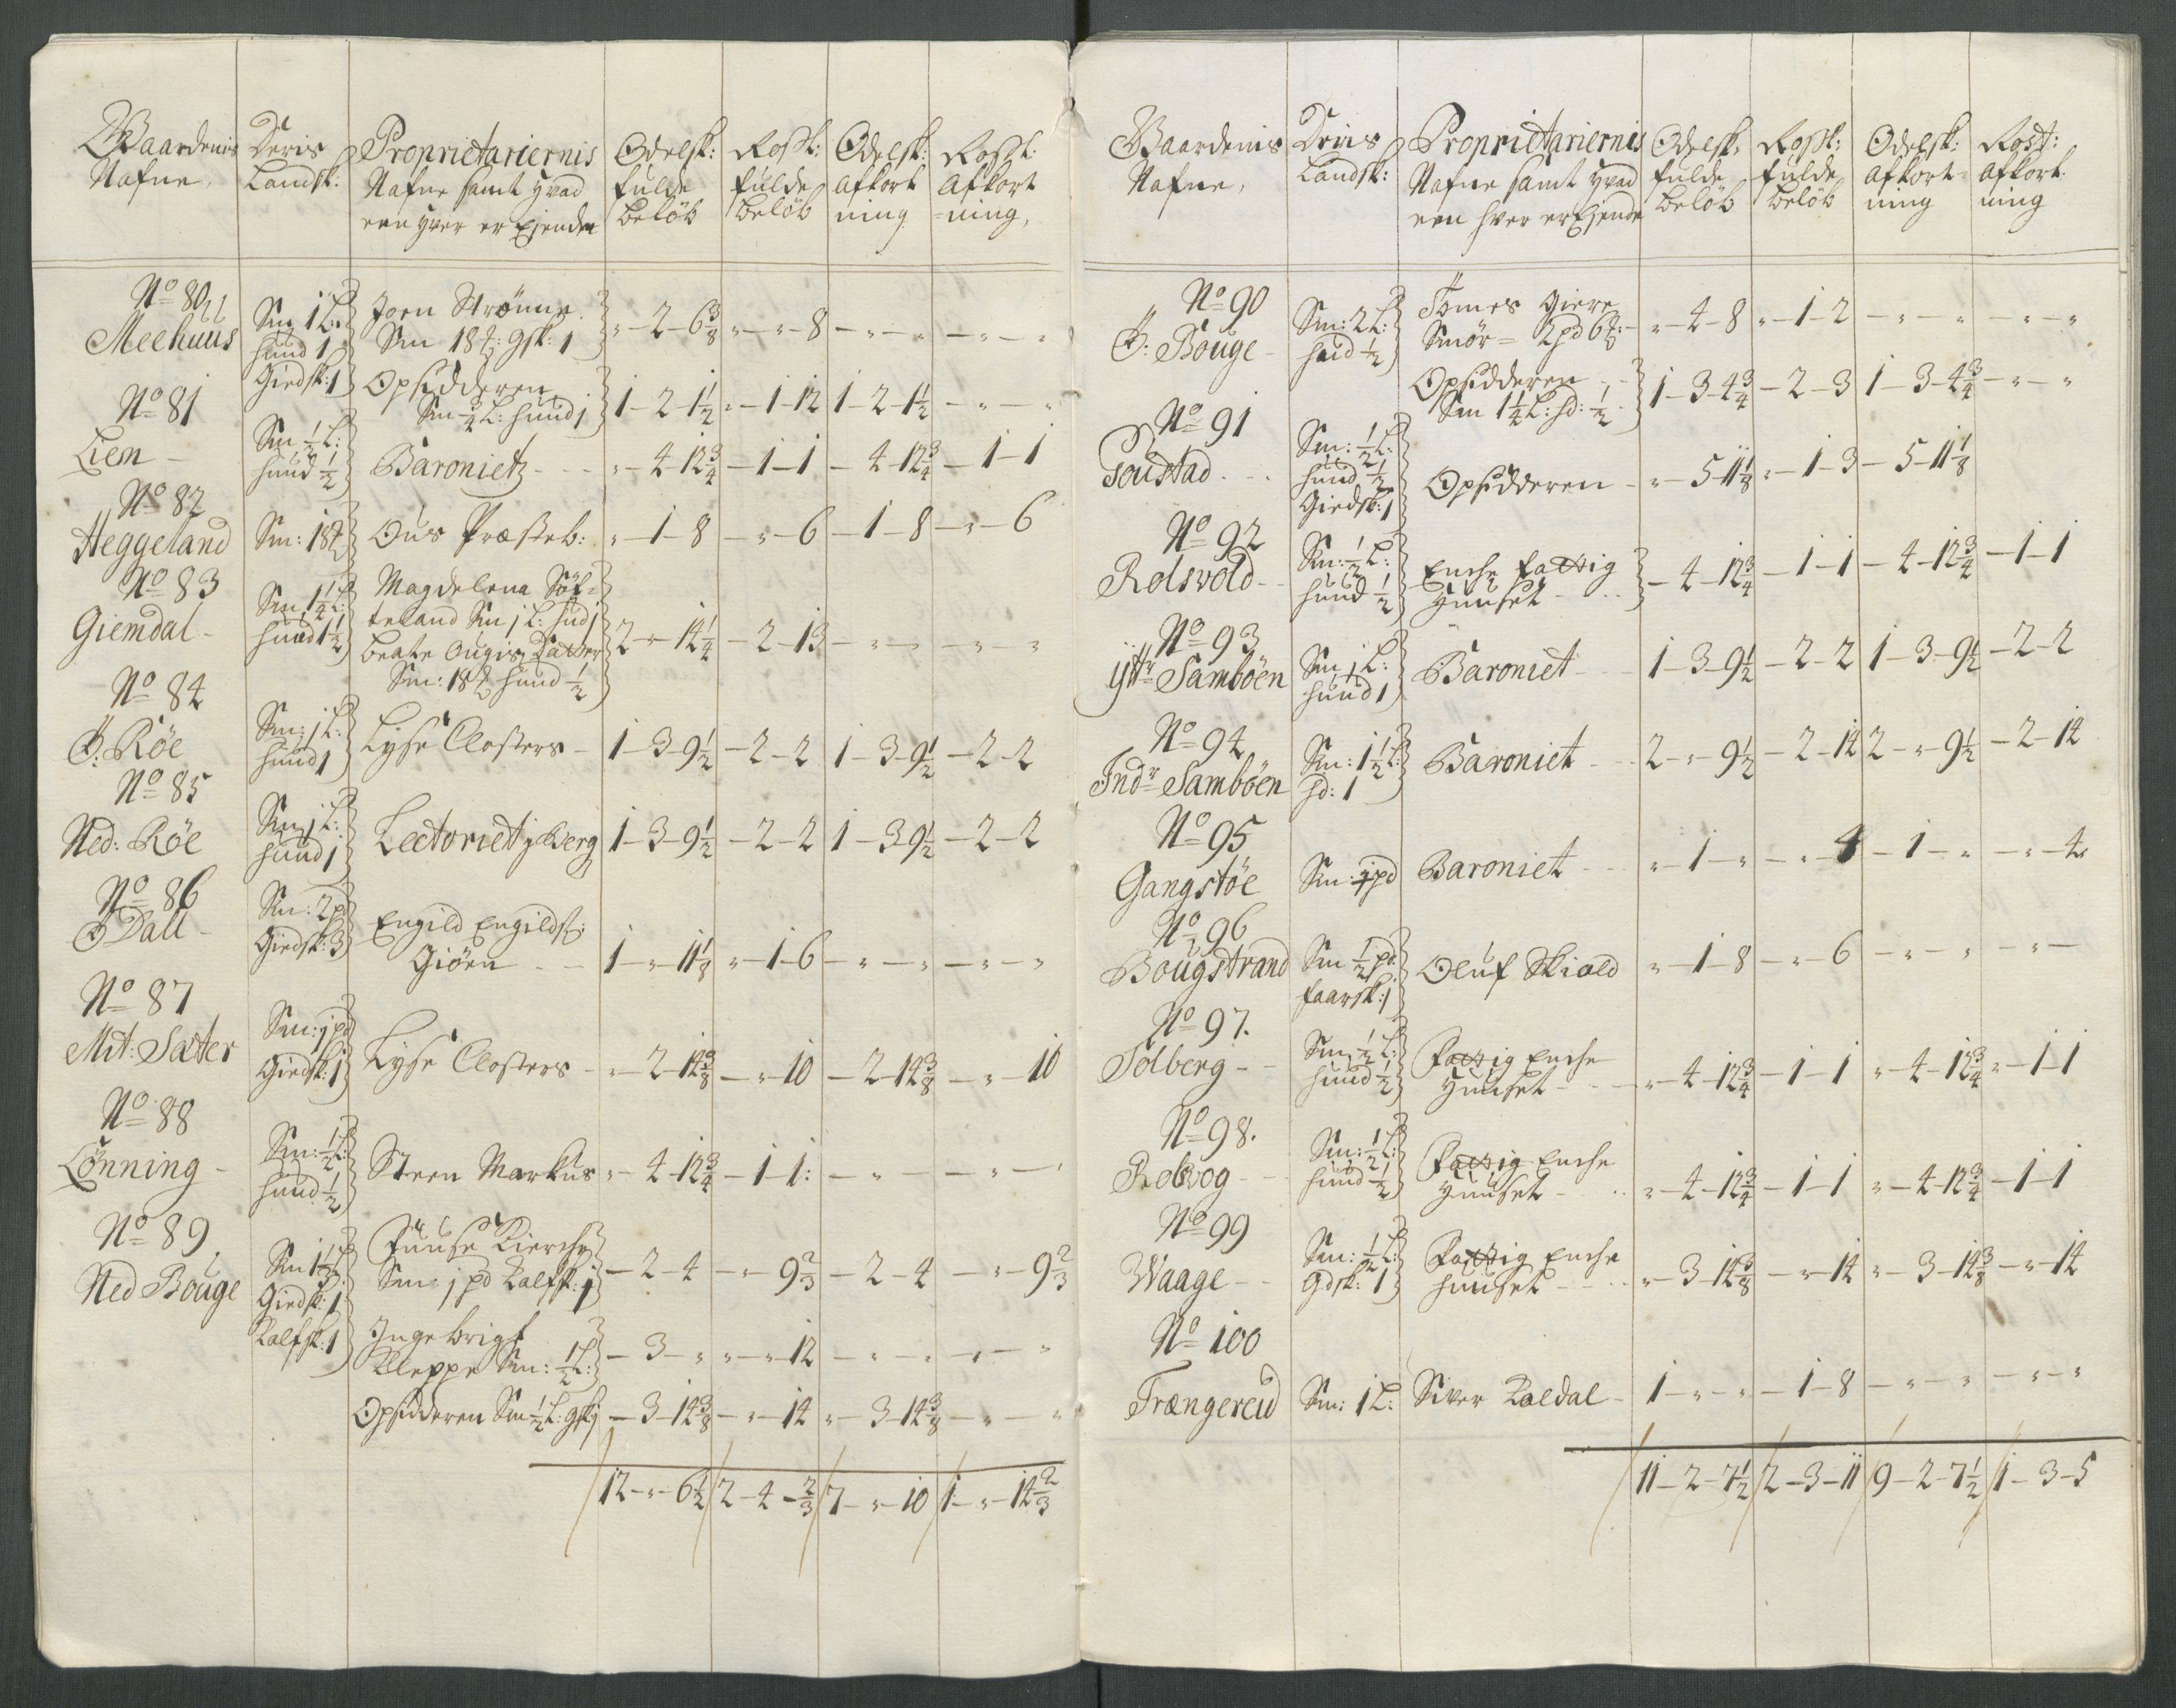 Gaardenis Nafne,
Deris Landsk:
Proprietariernis Nafne samt hvad een hver er Ejende
Odelsk: fulde beløb
Rostk: fulde beløb
Odelsk: afkort ning
Rostk: Afkort =ning,
No 80
Meehuus
Sm 1 L: hund 1 Giedsk: 1
Joen Strønne. Sm 18 ℔: gsk: 1
" - 2 - 6 3/8
" - " - 8
- " - "
- " - "
Opsidderen Sm 3/4 L: hund 1
1 - 2 - 1 1/2
" - 1 - 12
1 - 2 - 1 1/2
- " - "
No 81
Lien -
Sm 1/2 L: hund 1/2
Baroniet - - -
" - 4 - 12 3/4
- 1 - 1
- 4 - 12 3/4
- 1 - 1
No 82
Heggeland
Sm: 18 ℔
Ous Præsteb:
" - 1 - 8
- " - 6
- 1 - 8
- " - 6
No 83
Giemdal -
Sm 1 1/4 L: hund 1 1/2
Magdelena Söf=
teland Sm 1 L: hud 1
2 - " - 14 1/4
- 2 - 13
- " - "
- " - "
Sm: 18 ℔ hund 1/2
No 84
Ö: Röe
Sm: 1 L: hund 1
Lyse Closters -
1 - 3 - 9 1/2
- 2 - 2
1 - 3 - 9 1/2
- 2 - 2
No 85
Ned: Röe
Sm 1 L: hund 1
Lectoriet j Berg
1 - 3 - 9 1/2
- 2 - 2
1 - 3 - 9 1/2
- 2 - 2
No 86
Ö Dall -
Sm: 2 pd Giedsk: 3
Engild Engilds:
Giøen - -
1 - " - 11 1/8
" - 1 - 6
- " - "
- " - "
No 87
Mit: Sæter
Sm: 1 pd Giedsk: 1
Lyse Closters -
" - 2 - 14 3/8
- " - 10
- 2 - 14 3/8
- " - 10
No 88
Lönning -
Sm: 1/2 L: hund 1/2
Steen Markus
" - 4 - 12 3/4
- 1 - 1:
- " -
- " -
No 89
Ned Bouge
Giedsk: 1 Kalfsk: 1
Fuuse Kierche
Sm: 1 pd Kalfsk: 1
- 2 - 4
- " - 9 2/3
- 2 - 4
- " - 9 2/3
Ingebrigt
Kleppe Sm: 1/2 L:
- 3 - "
" - " - 12
- " - "
- " - "
Opsidderen Sm 1/2 L: gsk: 1
- 3 - 14 3/8
- " - 14
" - 3 - 14 3/8
- " - "
12 - " - 6 1/2
2 - 4 - 2/3
7 - " - 10
1 - " - 14 2/3
Gaardenis Nafne,
Deris Landsk:
Proprietariernis Nafne samt hvad een hver er Ejende
Odelsk: fulde beløb
Rostk: fulde beløb
Odelsk: afkort= ning
Rost: Afkort. ning
No 90
Ö: Bouge -
Sm: 2 L: hud 1/2
Tomes Giere
Smör = 2 pd 6 ℔: -
" - 4 - 8
" - 1 - 2
- " - "
- " - "
Opsidderen
Sm 1 1/4 L: hd: 1/2
1 - 3 - 4 3/4
- 2 - 3
1 - 3 - 4 3/4
- " - "
No 91
Toustad - -
Sm: 1/2 L: hund 1/2 Giedsk: 1
Opsidderen -
" - 5 - 11 1/8
" - 1 - 3
- 5 - 11 1/8
No 92
Rolsvold -
Sm: 1/2 L: hund 1/2
Enche Fattig
Huuset - - -
- 4 - 12 3/4
- 1 - 1
- 4 - 12 3/4
- 1 - 1
No 93
Ÿttr Samböen
Sm 1 L: hund 1
Baroniet - - -
1 - 3 - 9 1/2
- 2 - 2
1 - 3 - 9 1/2
- 2 - 2
No 94
Indr Samböen
Sm: 1 1/2 L: hd: 1
Baroniet - -
2 - " - 9 1/2
- 2 - 14
2 - " - 9 1/2
- 2 - 14
No 95
Gangstöe
Sm: 1 pd
Baroniet - -
" - 1 - "
- " - 4
- 1 - "
- " - 4
No 96
Bougstrand
Sm 1/2 pd: faarsk: 1
Oluf Skiold
" - 1 - 8
- " - 6
- " - "
- " -
No 97.
Solberg - -
Sm: 1/2 L: hund 1/2
Fattig Enche
Huuset - -
" - 4 - 12 3/4
- 1 - 1
" - 4 - 12 3/4
" - 1 - 1
No 98.
Sm: 1/2 L: hund 1/2
Fattig Enche
Huuset - -
" - 4 - 12 3/4
- 1 - 1
" - 4 - 12 3/4
- 1 - 1
No 99
Waage - -
Sm: 1/2 L: Gdsk: 1
Fattig Enche
Huuset - -
" - 3 - 14 3/8
- " - 14
" - 3 - 14 3/8
- " - 14
No 100
Trængereid
Sm: 1 L:
Siver Kaldal -
1 - " - "
- 1 - 8
- " - "
- " - "
11 - 2 - 7 1/2
2 - 3 - 11
9 - 2 - 7 1/2
1 - 3 - 5